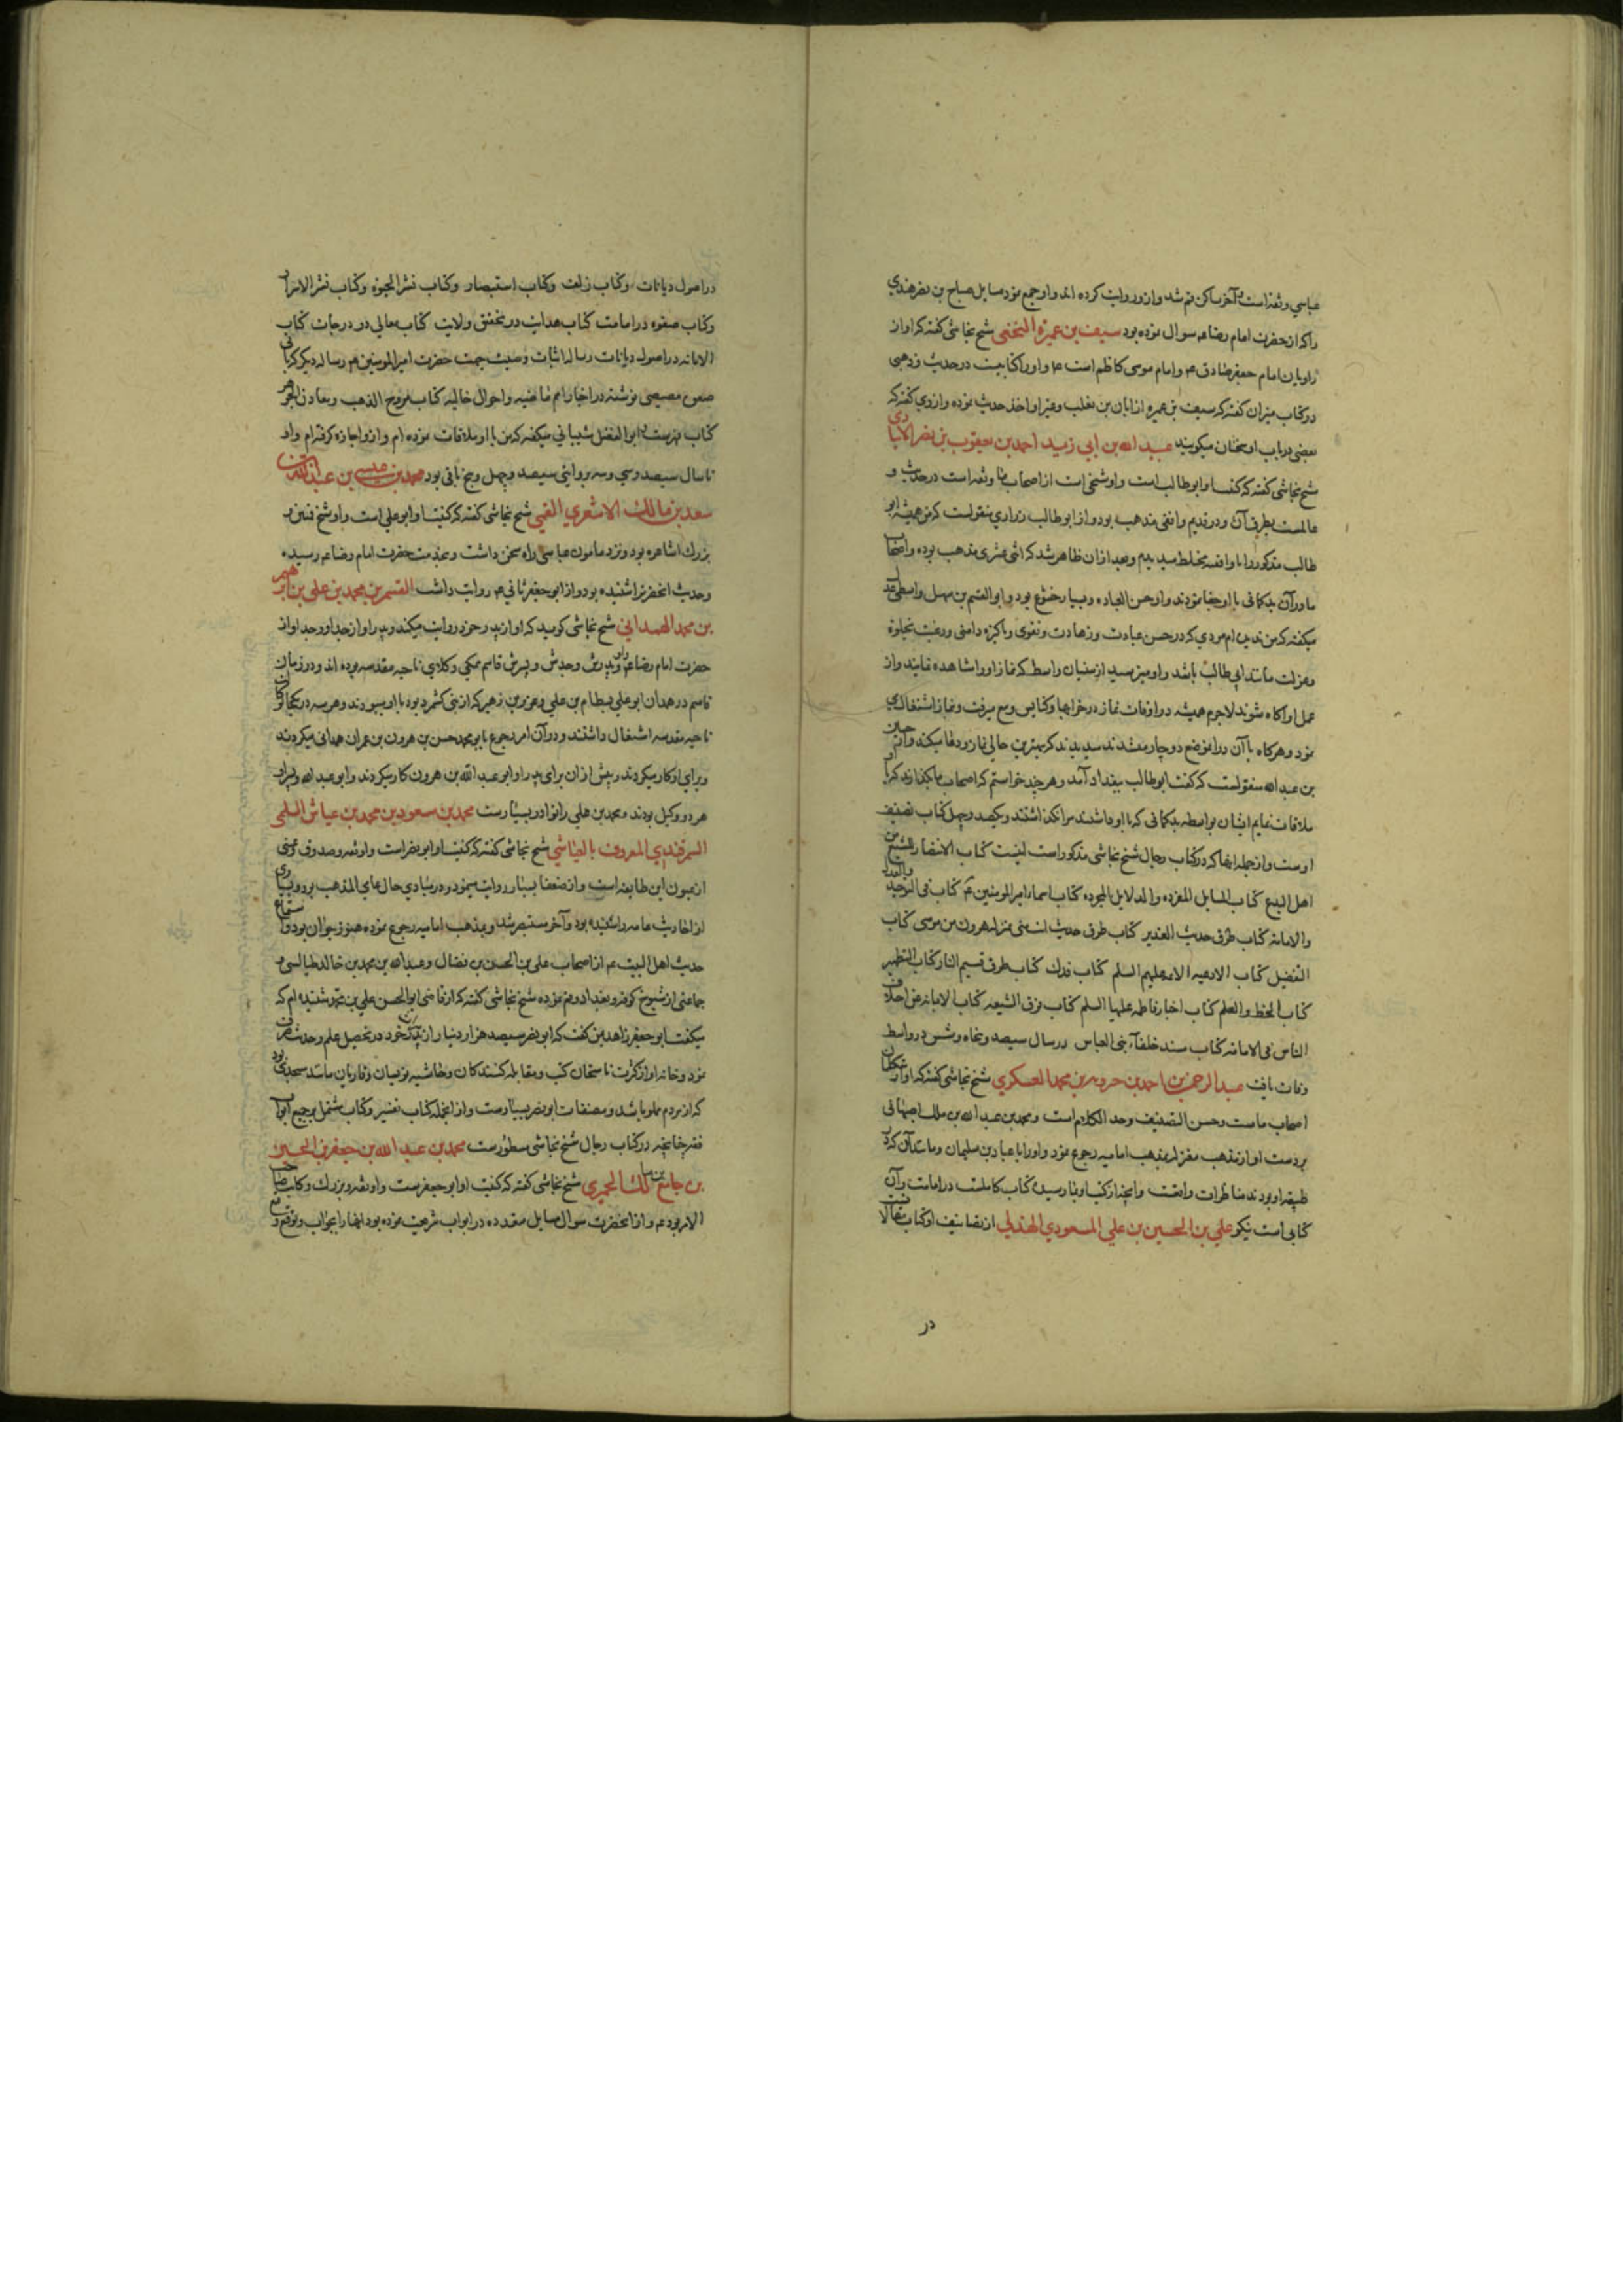 عباسی و ثقه است و آخر ساکن قم شد و ازو روایت کرده اند و او جمع نمود مسایل صباح بن نصر هندی
را که از حضرت امام رضا عم سوال نموده بود سیف بن عمیرة النخعی شیخ نجاشی گفته که او از
راویان امام جعفر صادق ع و امام موسی کاظم است ع و او را کتابیست در حدیث و ذهبی
در کتاب میزان گفته که سیف بن عمیره از ابان بن تغلب و غیر او اخذ حدیث نموده و ازدی گفته که
بعضی در باب او سخنان میگویند عبید الله بن ابی زید احمد بن یعقوب بن نصر الانباری
شیخ نجاشی گفته که کنیت او ابو طالب است و او شیخی است از اصحاب ما و ثقه است در حدیث و
عالمست بطرق آن و در قدیم واقفی مذهب بود و از ابو طالب زراری منقولست که من همیشه ابو
طالب مذکور را با واقفه مختلط میدیدم و بعد از ان ظاهر شد که اثنی عشری مذهب بوده و اصحاب
ما در آن بدگمانی با او جفا نمودند و او حسن العباده و بسیار خشوع بود و ابو القسم بن سهل واسطی
میگفته که من ندیده ام مردی که در حسن عبادت و زهادت و تقوی و پاکیزه دامنی و رغبت بخلوة
و عزلت مانند ابی طالب باشد و او میترسید از سنیان واسط که نماز او را مشاهده نمایند و از
عمل او آگاه شوند لاجرم همیشه در اوقات نماز در خرابها و کنایس و بیع میرفت و بنماز اشتغال
نمود و هرگاه با آن در انموضع دوچار میشدند میدیدند که بهترین حالی نماز و دعا میکند و از حسین
بن عبد الله منقولست که گفت ابو طالب ببغداد آمد و هر چند خواستم که اصحاب ما بگذارند که با او
ملاقات نمایم ایشان بواسطه بدگمانی که با او داشتند مرا نگذاشتند و یکصد و چهل کتاب تصنیف
اوست و از جمله انها که در کتاب رجال شیخ نجاشی مذکور است اینست کتاب الانتصار للشیع من
اهل البدع کتاب المسایل المفرده والدلایل المجرده کتاب اسماء امیر المومنین عم کتاب فی التوحید والعدل
والامامه کتاب طرق حدیث الغدیر کتاب طرق حدیث انت منی بمنزله هرون من موسی کتاب
التفضیل کتاب الادعیه الائمه علیهم السلم کتاب فدک کتاب طرق قسیم النار کتاب التطهیر
کتاب الخط والقلم کتاب اخبار فاطمه علیها السلم کتاب فرق الشیعه کتاب الابانه عن اختلاف
الناس فی الامامه کتاب مسند خلفاء بنی العباس در سال سیصد و پنجاه و شش در واسط
وفات یافت عبد الرحمن بن احمد بن جرویه بن محمد العسکری شیخ نجاشی گفته که او از متکلمان
اصحاب ماست و حسن التصنیف و جید الکلام است و محمد بن عبد الله بن مملک اصبهانی
بر دست او از مذهب معتزله بمذهب امامیه رجوع نمود و او را با عباد بن سلیمان و مانند آن که در
طبقه او بودند مناظرات واقعست و انچه از کتب او بما رسیده کتاب کاملست در امامت و آن
کتابی است نیکو علی بن الحسین بن علی المسعودی الهذلی از تصانیف او کتاب مقالات است
در
در اصول دیانات و کتاب زلف و کتاب استبصار و کتاب نشر الحیوة و کتاب نشر الاسرار
و کتاب صفوه در امامت کتاب هدایت در تحقیق ولایت کتاب معالی در درجات کتاب
الابانه در اصول دیانات رساله اثبات وصیت جهت حضرت امیر المومنین عم رساله دیگر که بابی
صعق مصیصی نوشته در اخبار امم ماضیه و احوال خالیه کتاب مروج الذهب و معادن الجوهر
کتاب فهرست و ابو المفضل شیبانی میگفته که من با او ملاقات نموده ام و ازو اجازه گرفته ام و او
تا سال سیصد و سی و سه بروایتی سیصد و چهل و پنج باقی بود محمد بن عیسی بن عبد الله بن
سعد بن مالک الاشعری القمی شیخ نجاشی گفته که کنیت او ابو علی است و او شیخ قمیین و
بزرگ اشاعره بود و نزد مامون عباسی راه سخن داشت و بخدمت حضرت امام رضا عم رسیده
و حدیث انحضرترا شنیده بود و از ابو جعفر ثانی ع روایت داشت القسم بن محمد بن علی بن ابرهیم
بن محمد الهمدانی شیخ نجاشی گوید که او از پدر خود روایت میکند و پدر او از جد او و جد او از
حضرت امام رضا عم و او و پدرش و جدش و پسرش قاسم همگی وکلای ناحیه مقدسه بوده اند و در زمان
قاسم در همدان ابو علی بسطام بن علی و عزیز بن زهیر که از بنی کشمرد بود با او میبودند و هر سه در یکجا بکار
ناحیه مقدسه اشتغال داشتند و در آن امر رجوع بابو محمد حسن بن هرون بن عمران همدانی میکردند
و برای او کار میکردند و پیش از ان برای پدر او ابو عبد الله بن هرون کار میکردند و ابو عبد الله و پسر او
هر دو وکیل بودند و محمد بن علی را نوادر بسیار ست محمد بن مسعود بن محمد بن عیاش السلمی
السمرقندی المعروف بالعیاشی شیخ نجاشی گفته که کنیت او ابو نضر است و او ثقه و صدوق و عینی
از عیون این طایفه است و از ضعفا بسیار روایت مینمود و در مبادی حال عامی المذهب بود و بسیاری
از احادیث عامه را شنیده بود و آخر مستبصر شد و بمذهب امامیه رجوع نموده هنوز جوان بود و استماع
حدیث اهل البیت عم از اصحاب علی بن الحسن بن فضال و عبد الله بن محمد بن خالد طیالسی و
جماعتی از شیوخ کوفه و بغداد و قم نموده شیخ نجاشی گفته که از قاضی ابو الحسن علی بن محمد شنیده ام که
میگفت ابو جعفر زاهد بمن گفت که ابو نضر سیصد هزار دینار از ترکه پدر خود در تحصیل علم و حدیث صرف
نمود و خانه او از کثرت ناسخان کتب و مقابله کنندکان و محاشیه نویسان و قاریان مانند مسجدی بود
که از مردم مملو باشد و مصنفات ابو نضر بسیار ست و از انجمله کتاب تفسیر و کتاب مشتمل بر جمیع ابواب
فقه چنانچه در کتاب رجال شیخ نجاشی مسطور ست محمد بن عبد الله بن جعفر بن الحسین
بن جامع بن مالک الحمیری شیخ نجاشی گفته که کنیت او ابو جعفر ست و او ثقه و بزرگ و کاتب صاحب
الامر بود عم و از انحضرت سوال مسایل متعدده در ابواب شریعت نموده بود انها را بجواب و توقیع